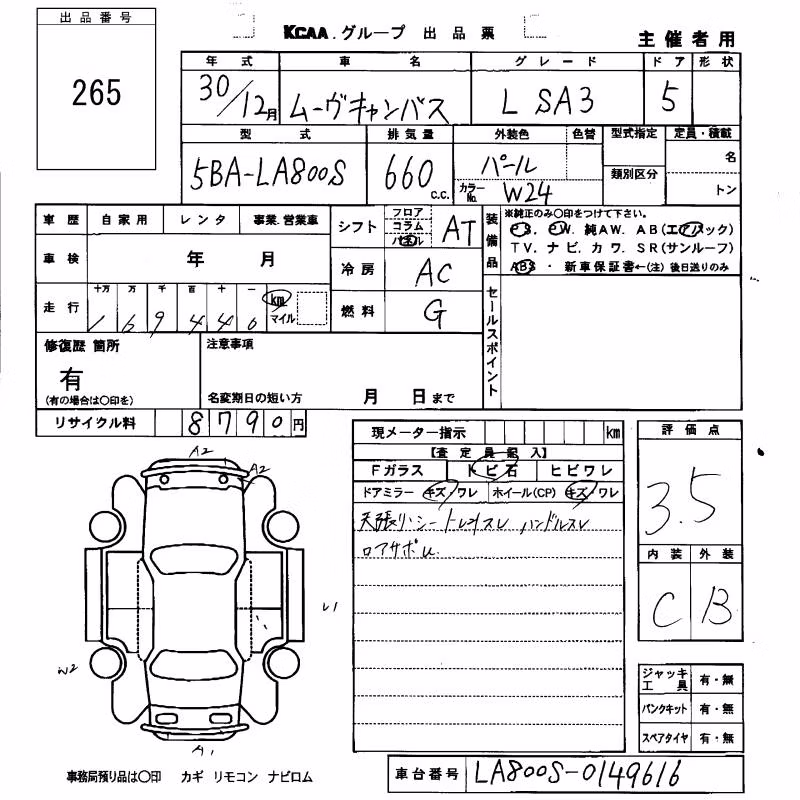 出品番号
265
KCAA.グループ 出品票
主催者用
年式 車名 グレード ドア 形状
30/12月 ムーヴキャンバス L SA3 5
型式 排気量 外装色 色替 型式指定 定員・積載
5BA-LA800S 660 c.c. パール 類別区分 名
カラーNo. W24 トン
車歴 自家用 レンタ 事業.営業車
シフト フロア コラム パネル AT
装備品
※純正のみ○印をつけて下さい。
PS. PW. 純AW. AB(エアバック)
TV. ナビ. カワ. SR(サンルーフ)
ABS ・ 新車保証書←(注) 後日送りのみ
車検 年 月
冷房 AC
走行 十万 万 千 百 十 一
1 6 9 4 4 0 km マイル
燃料 G
セールスポイント
修復歴 箇所
有
(有の場合は○印を)
注意事項
名変期日の短い方 月 日まで
リサイクル料 8790円
現メーター指示 km
【査定員記入】
Fガラス トビ石 ヒビワレ
ドアミラー キズ/ワレ ホイール(CP) キズ/ワレ
天張り・シート レオスレ ハンドルスレ
ロアサポ
評価点
3.5
内装 外装
C B
A2
A2
U1
W2
A1
ジャッキ工具 有・無
パンクキット 有・無
スペアタイヤ 有・無
事務局預り品は○印 カギ リモコン ナビロム
車台番号 LA800S-0149616